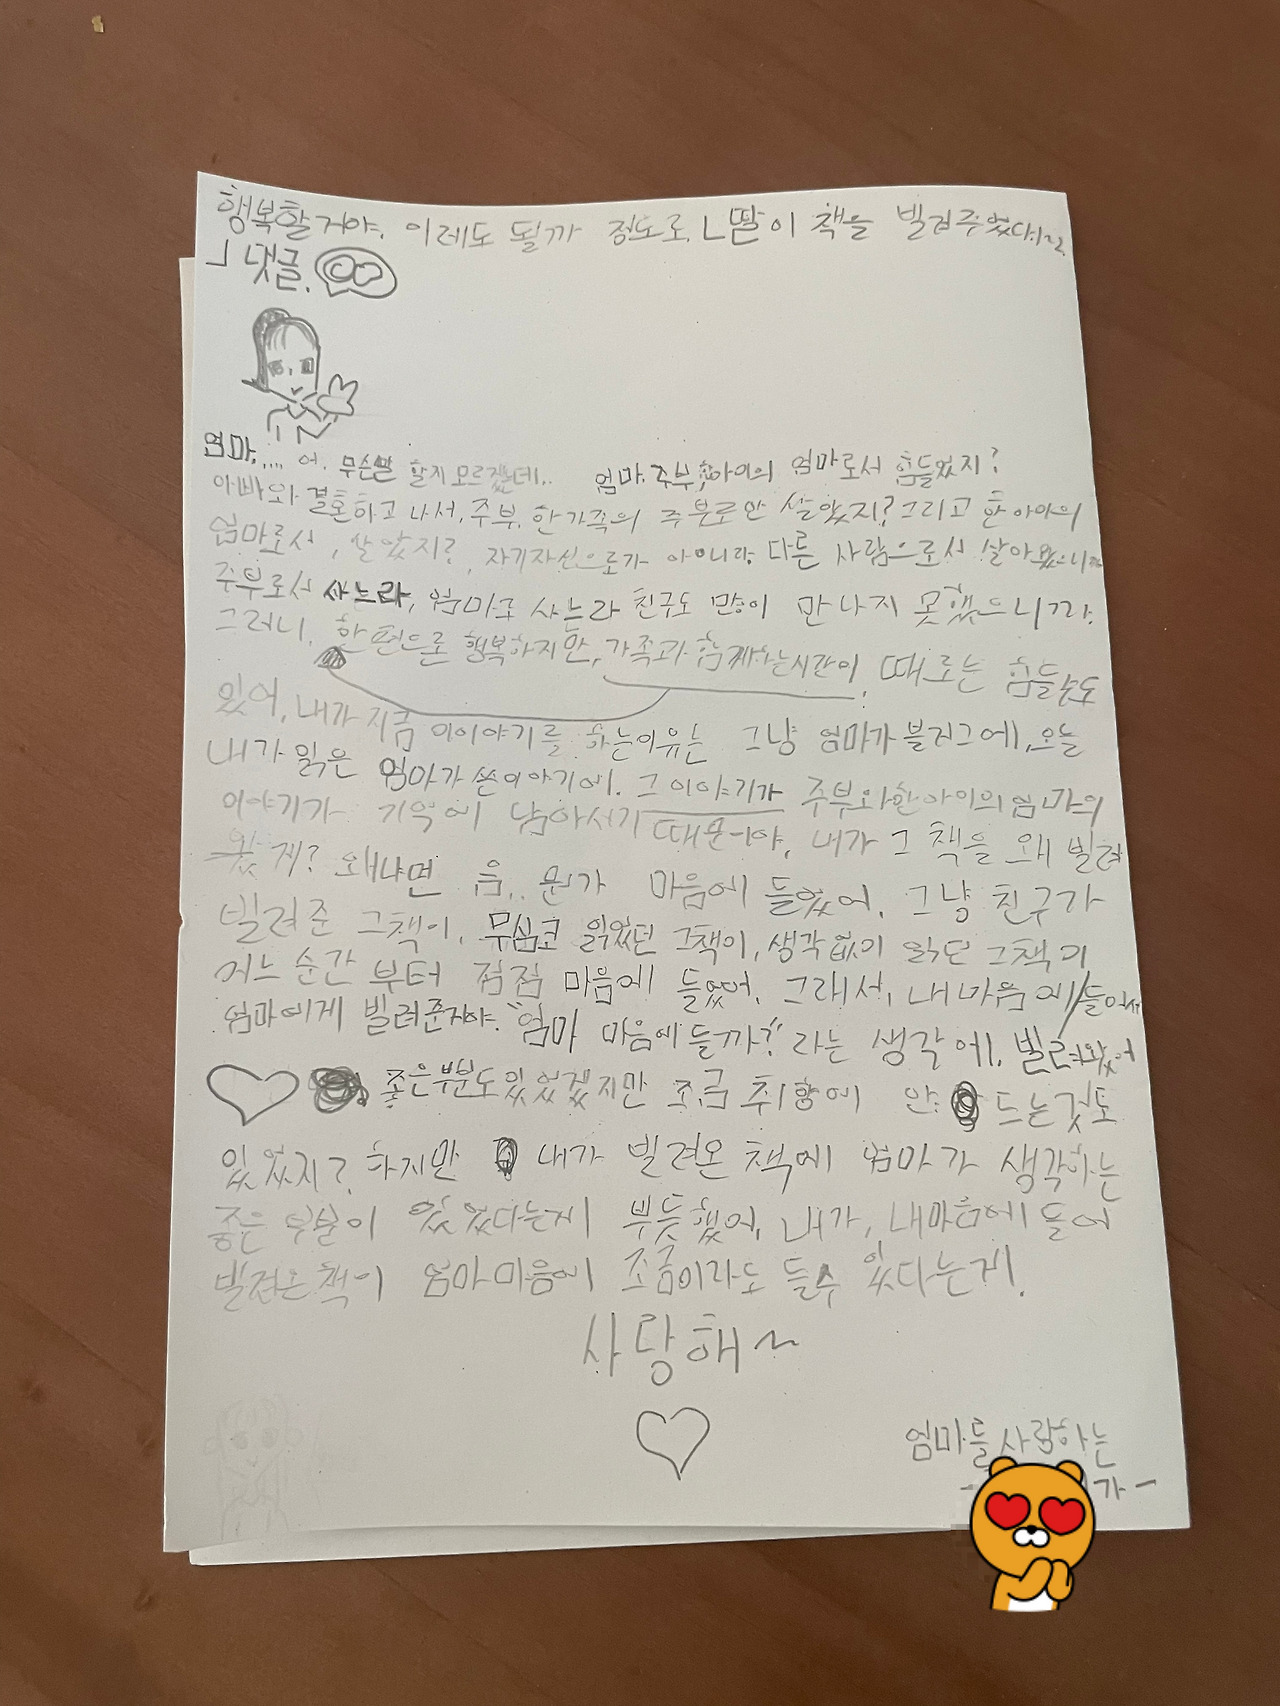 행복할거야. 이레도 될까 정도로 ㄴ딸이 책을 빌려주었다.1~2
┘댓글.
엄마..... 어. 무슨말 할지 모르겠는데.. 엄마. 주부, 한아이의 엄마로서 힘들었지?
아빠와 결혼하고 나서, 주부. 한가족의 주부로만 살았지? 그리고 한 아이의
엄마로서, 살았지?, 자기자신으로가 아니라 다른 사람으로서 살아왔으니까
주부로서 사느라, 엄마로 사느라 친구도 많이 만나지 못했으니까.
그러니, 한편으론 행복하지만, 가족과 함께하는시간이, 때로는 힘들수도
있어, 내가 지금 이이야기를 하는이유는 그냥 엄마가 블러그에, 오늘
내가 읽은 엄마가 쓴이야기에. 그이야기가 주부와한아이의엄마의
이야기가 기억에 남아서기 때문이야, 내가 그 책을 왜 빌려
왔게? 왜냐면 음.. 뭔가 마음에 들었어. 그냥 친구가
빌려준 그책이, 무심코 읽었던 그책이, 생각없이 읽던 그책이
어느 순간 부터 점점 마음에 들었어. 그래서, 내 마음에 들어서
엄마에게 빌려준거야. "엄마 마음에 들까?" 라는 생각에. 빌려왔어
좋은부분도있었겠지만 조금 취향에 안 드는것도
있었지? 하지만 내가 빌려온 책에 엄마가 생각하는
좋은 부분이 있었다는게 뿌듯했어, 내가, 내마음에 들어
빌려온책이 엄마마음에 조금이라도 들수 있다는게!
사랑해~
엄마를 사랑하는
가-